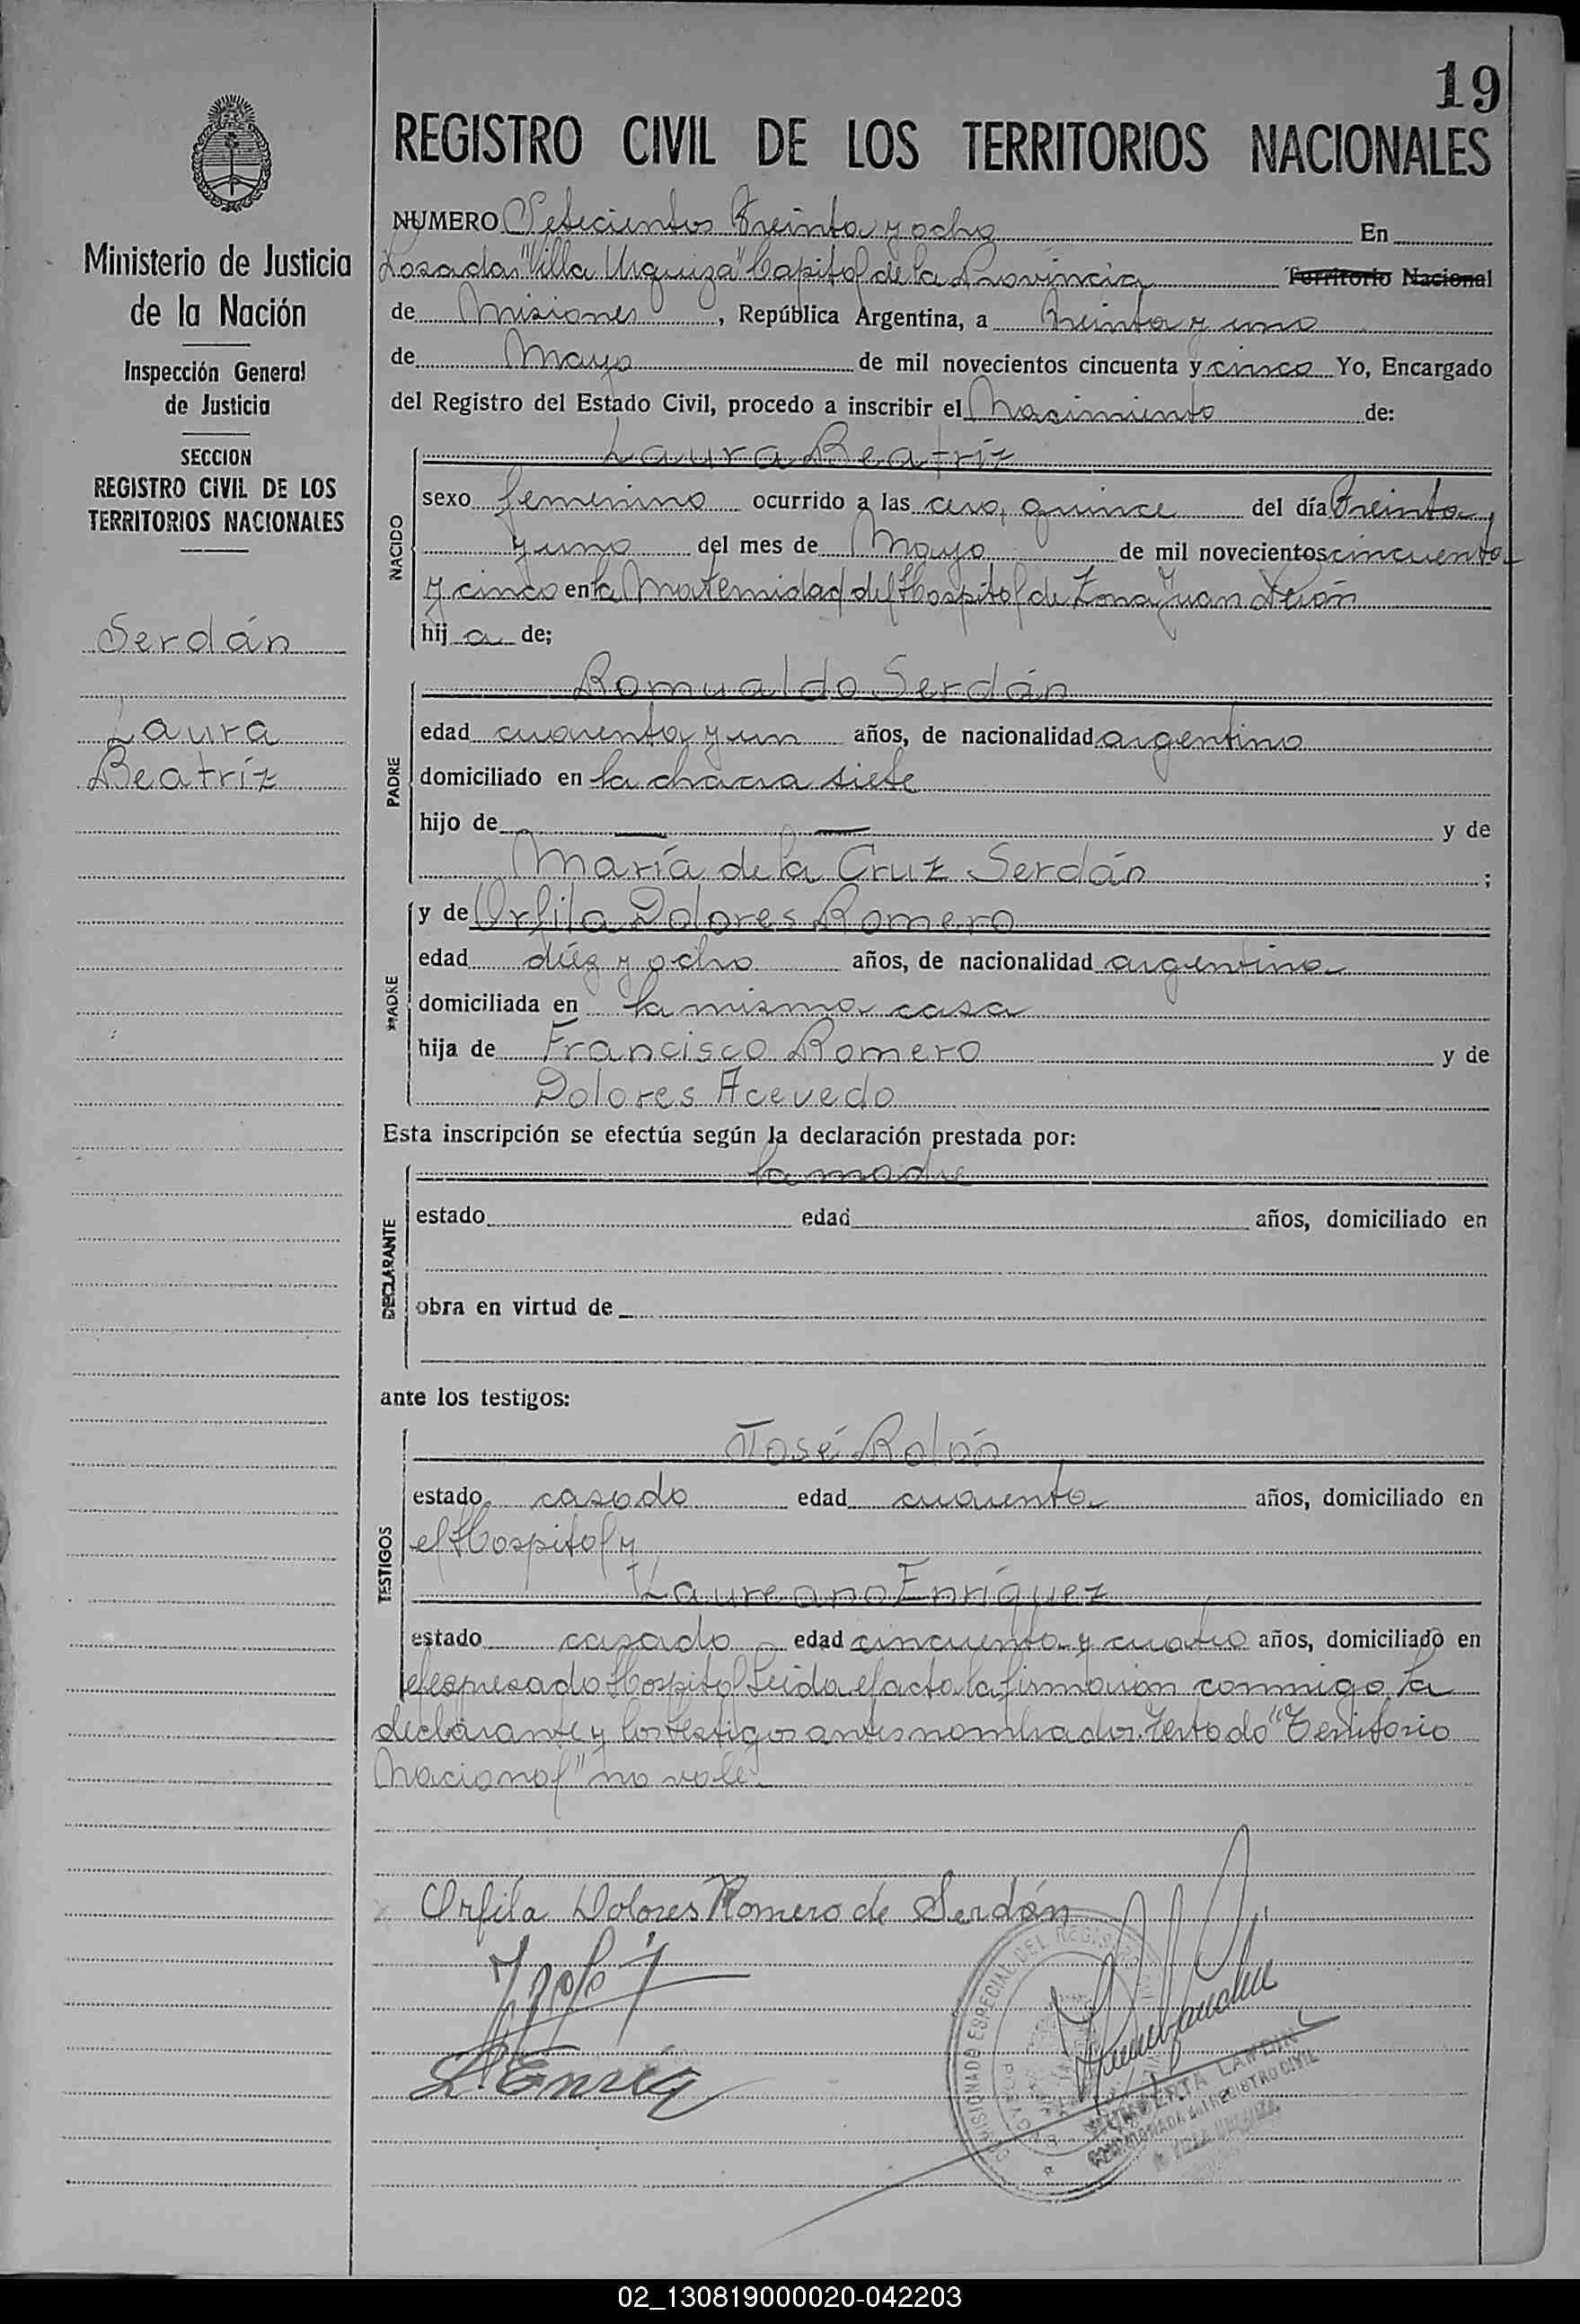 19
REGISTRO CIVIL DE LOS TERRITORIOS NACIONALES
Ministerio de Justicia
de la Nación
Inspección General
de Justicia
SECCION
REGISTRO CIVIL DE LOS
TERRITORIOS NACIONALES
Serdán
Laura
Beatríz
NUMERO Setecientos treinta y ocho En
Posadas "Villa Urquiza" Capital de la Provincia Territorio Nacional
de Misiones, República Argentina, a treinta y uno
de Mayo de mil novecientos cincuenta y cinco Yo, Encargado
del Registro del Estado Civil, procedo a inscribir el Nacimiento de:
NACIDO
Laura Beatríz
sexo femenino ocurrido a las cero, quince del día treinta
y uno del mes de Mayo de mil novecientos cincuenta
y cinco en la Maternidad del Hospital de Zona Juan Perón
hij a de;
PADRE
Romualdo Serdán
edad cuarenta y un años, de nacionalidad argentino
domiciliado en la chacra siete
hijo de — — y de
María de la Cruz Serdán ;
MADRE
y de Orfila Dolores Romero
edad diéz y ocho años, de nacionalidad argentina
domiciliada en la misma casa
hija de Francisco Romero y de
Dolores Acevedo
Esta inscripción se efectúa según la declaración prestada por:
DECLARANTE
la madre
estado edad años, domiciliado en
obra en virtud de
ante los testigos:
TESTIGOS
José Rolón
estado casado edad cuarenta años, domiciliado en
el Hospital y
Laureano Enríquez
estado casado edad cincuenta y cuatro años, domiciliado en
el espresado Hospital Leída el acta la firmaron conmigo, la
declarante y los testigos antes nombrados. Testado "Territorio
Nacional" no vale
Orfila Dolores Romero de Serdán
L. Enriq
COMISIONADO ESPECIAL DEL REGISTRO
COMISIONADA del REGISTRO CIVIL
VILLA URQUIZA
02_130819000020-042203